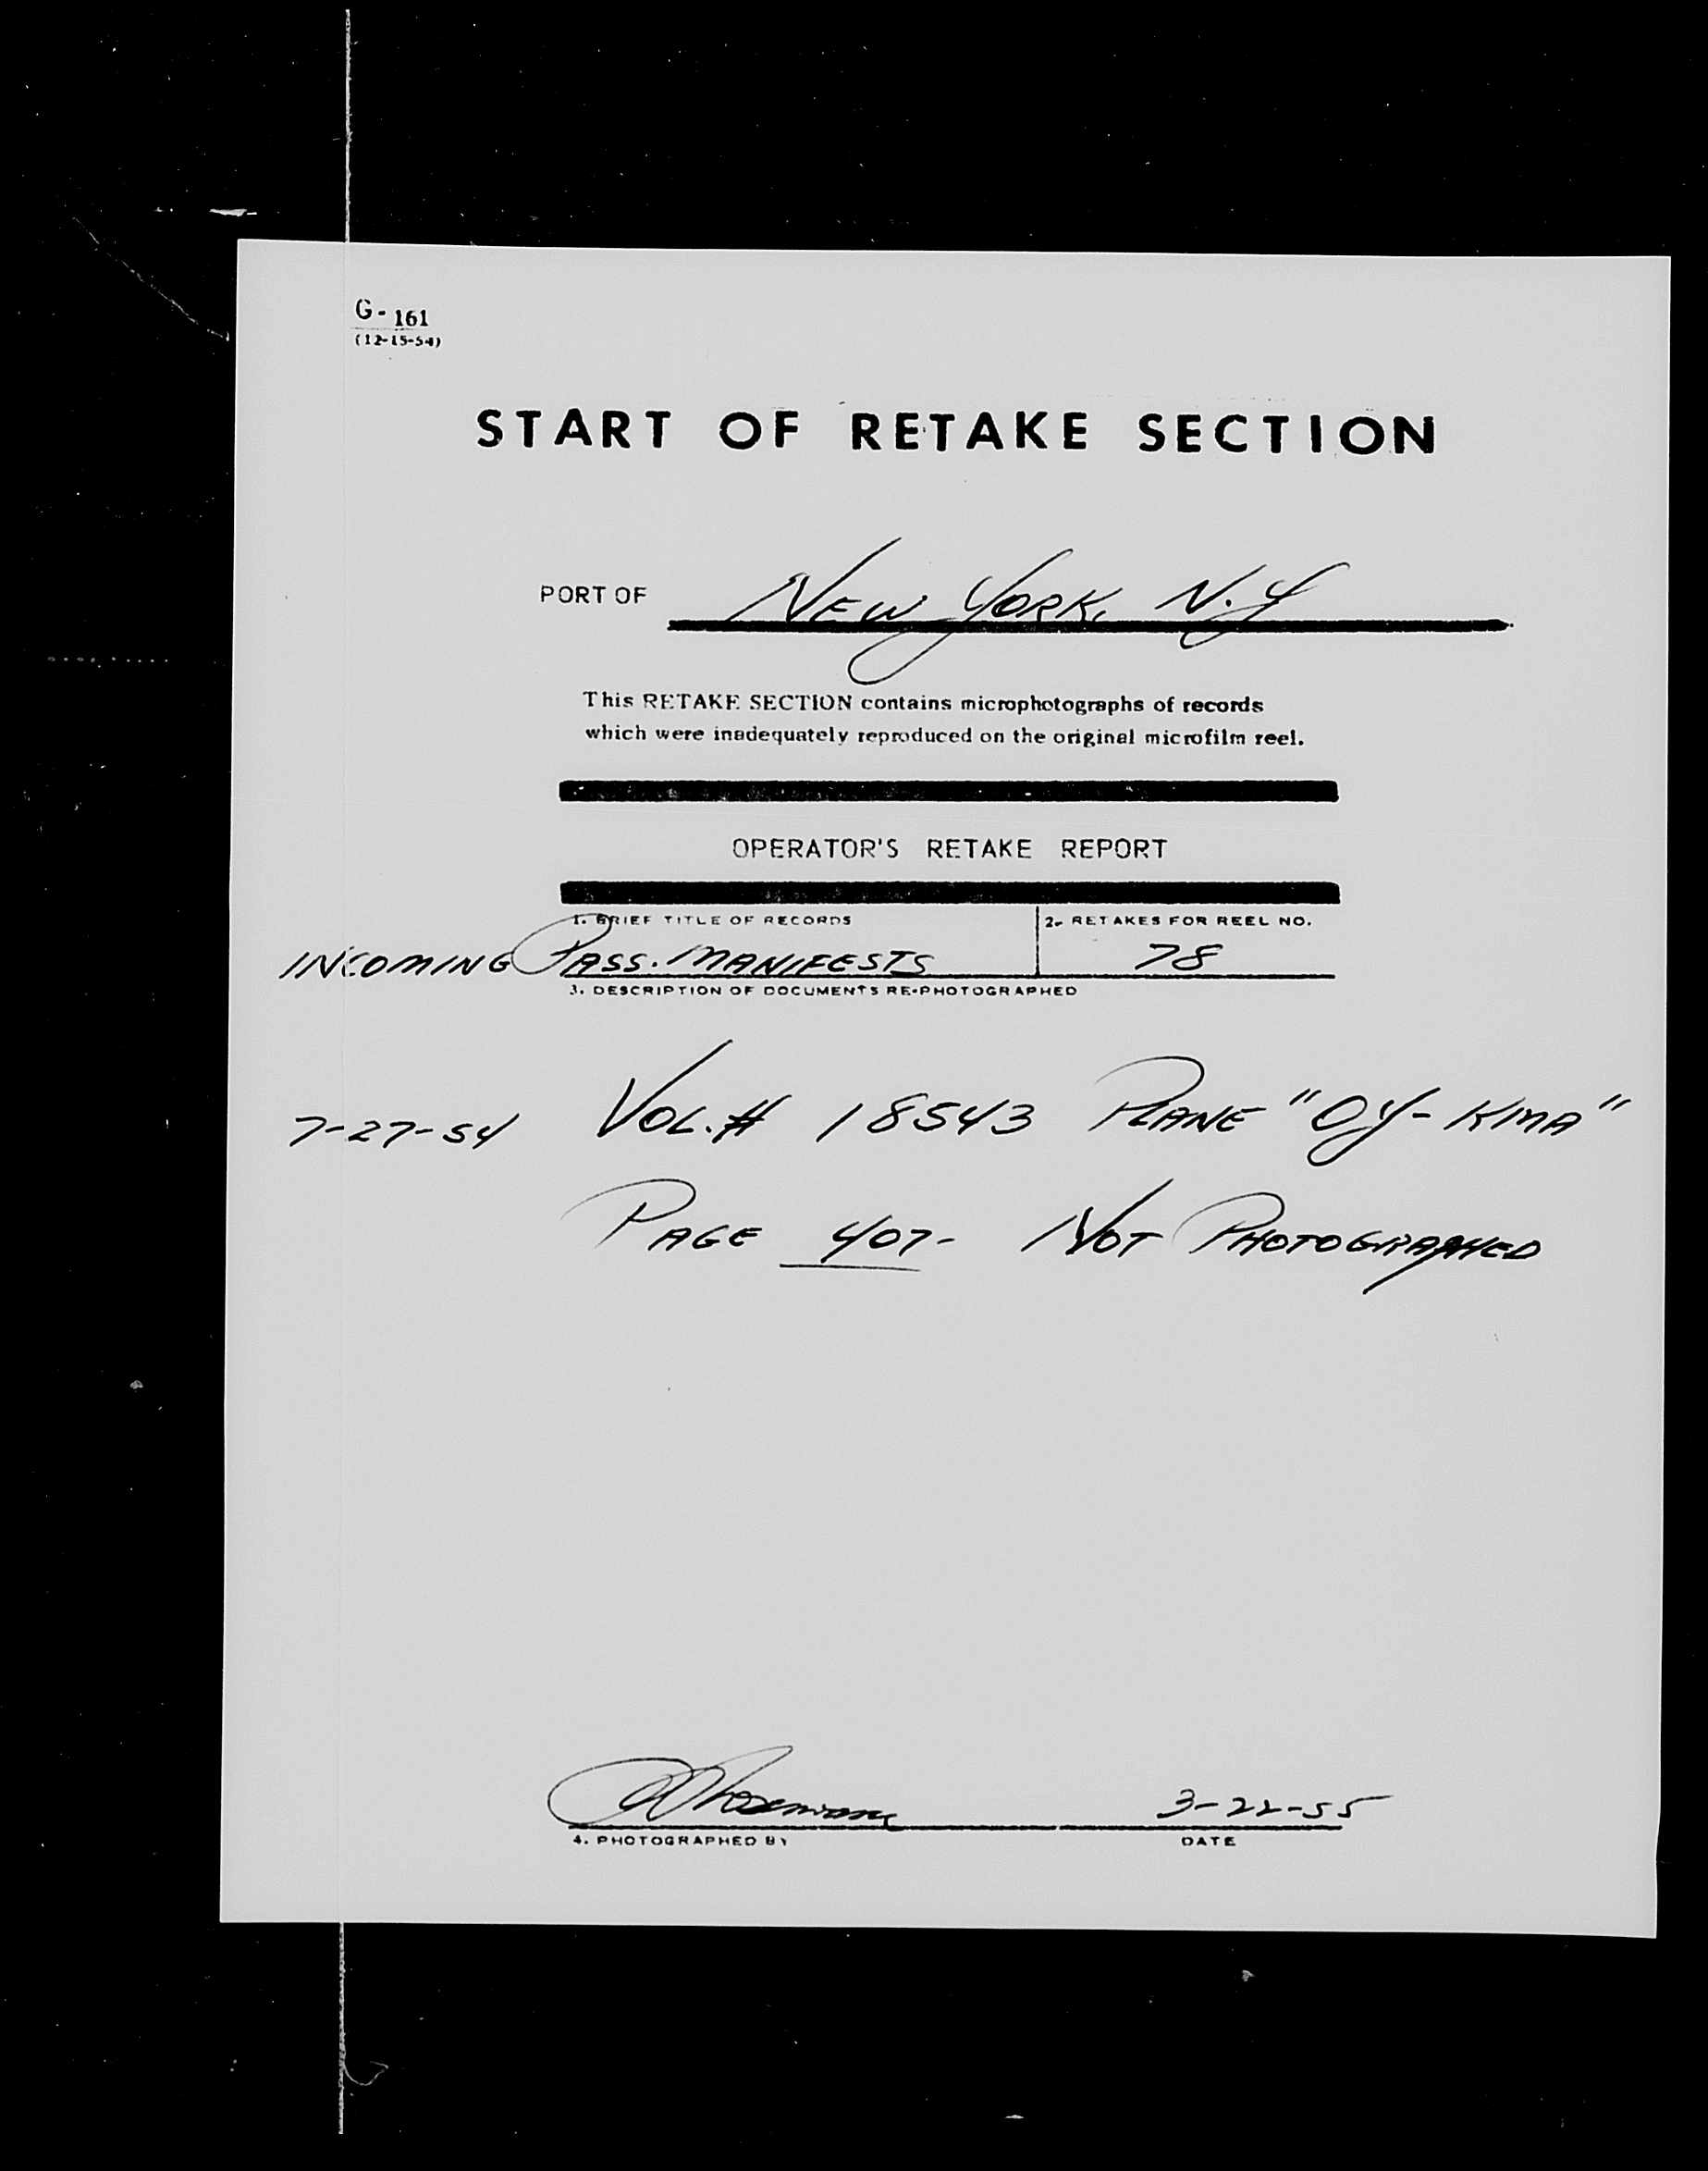 G-161
(12-15-54)
START OF RETAKE SECTION
PORT OF NEW YORK, N.Y
This RETAKE SECTION contains microphotographs of records
which were inadequately reproduced on the original microfilm reel.
OPERATOR'S RETAKE REPORT
1. BRIEF TITLE OF RECORDS 2. RETAKES FOR REEL NO.
INCOMING PASS. MANIFESTS 78
3. DESCRIPTION OF DOCUMENTS RE-PHOTOGRAPHED
7-27-54 VOL.# 18543 PLANE "OY-KMA"
PAGE 407- NOT PHOTOGRAPHED
3-22-55
4. PHOTOGRAPHED BY DATE